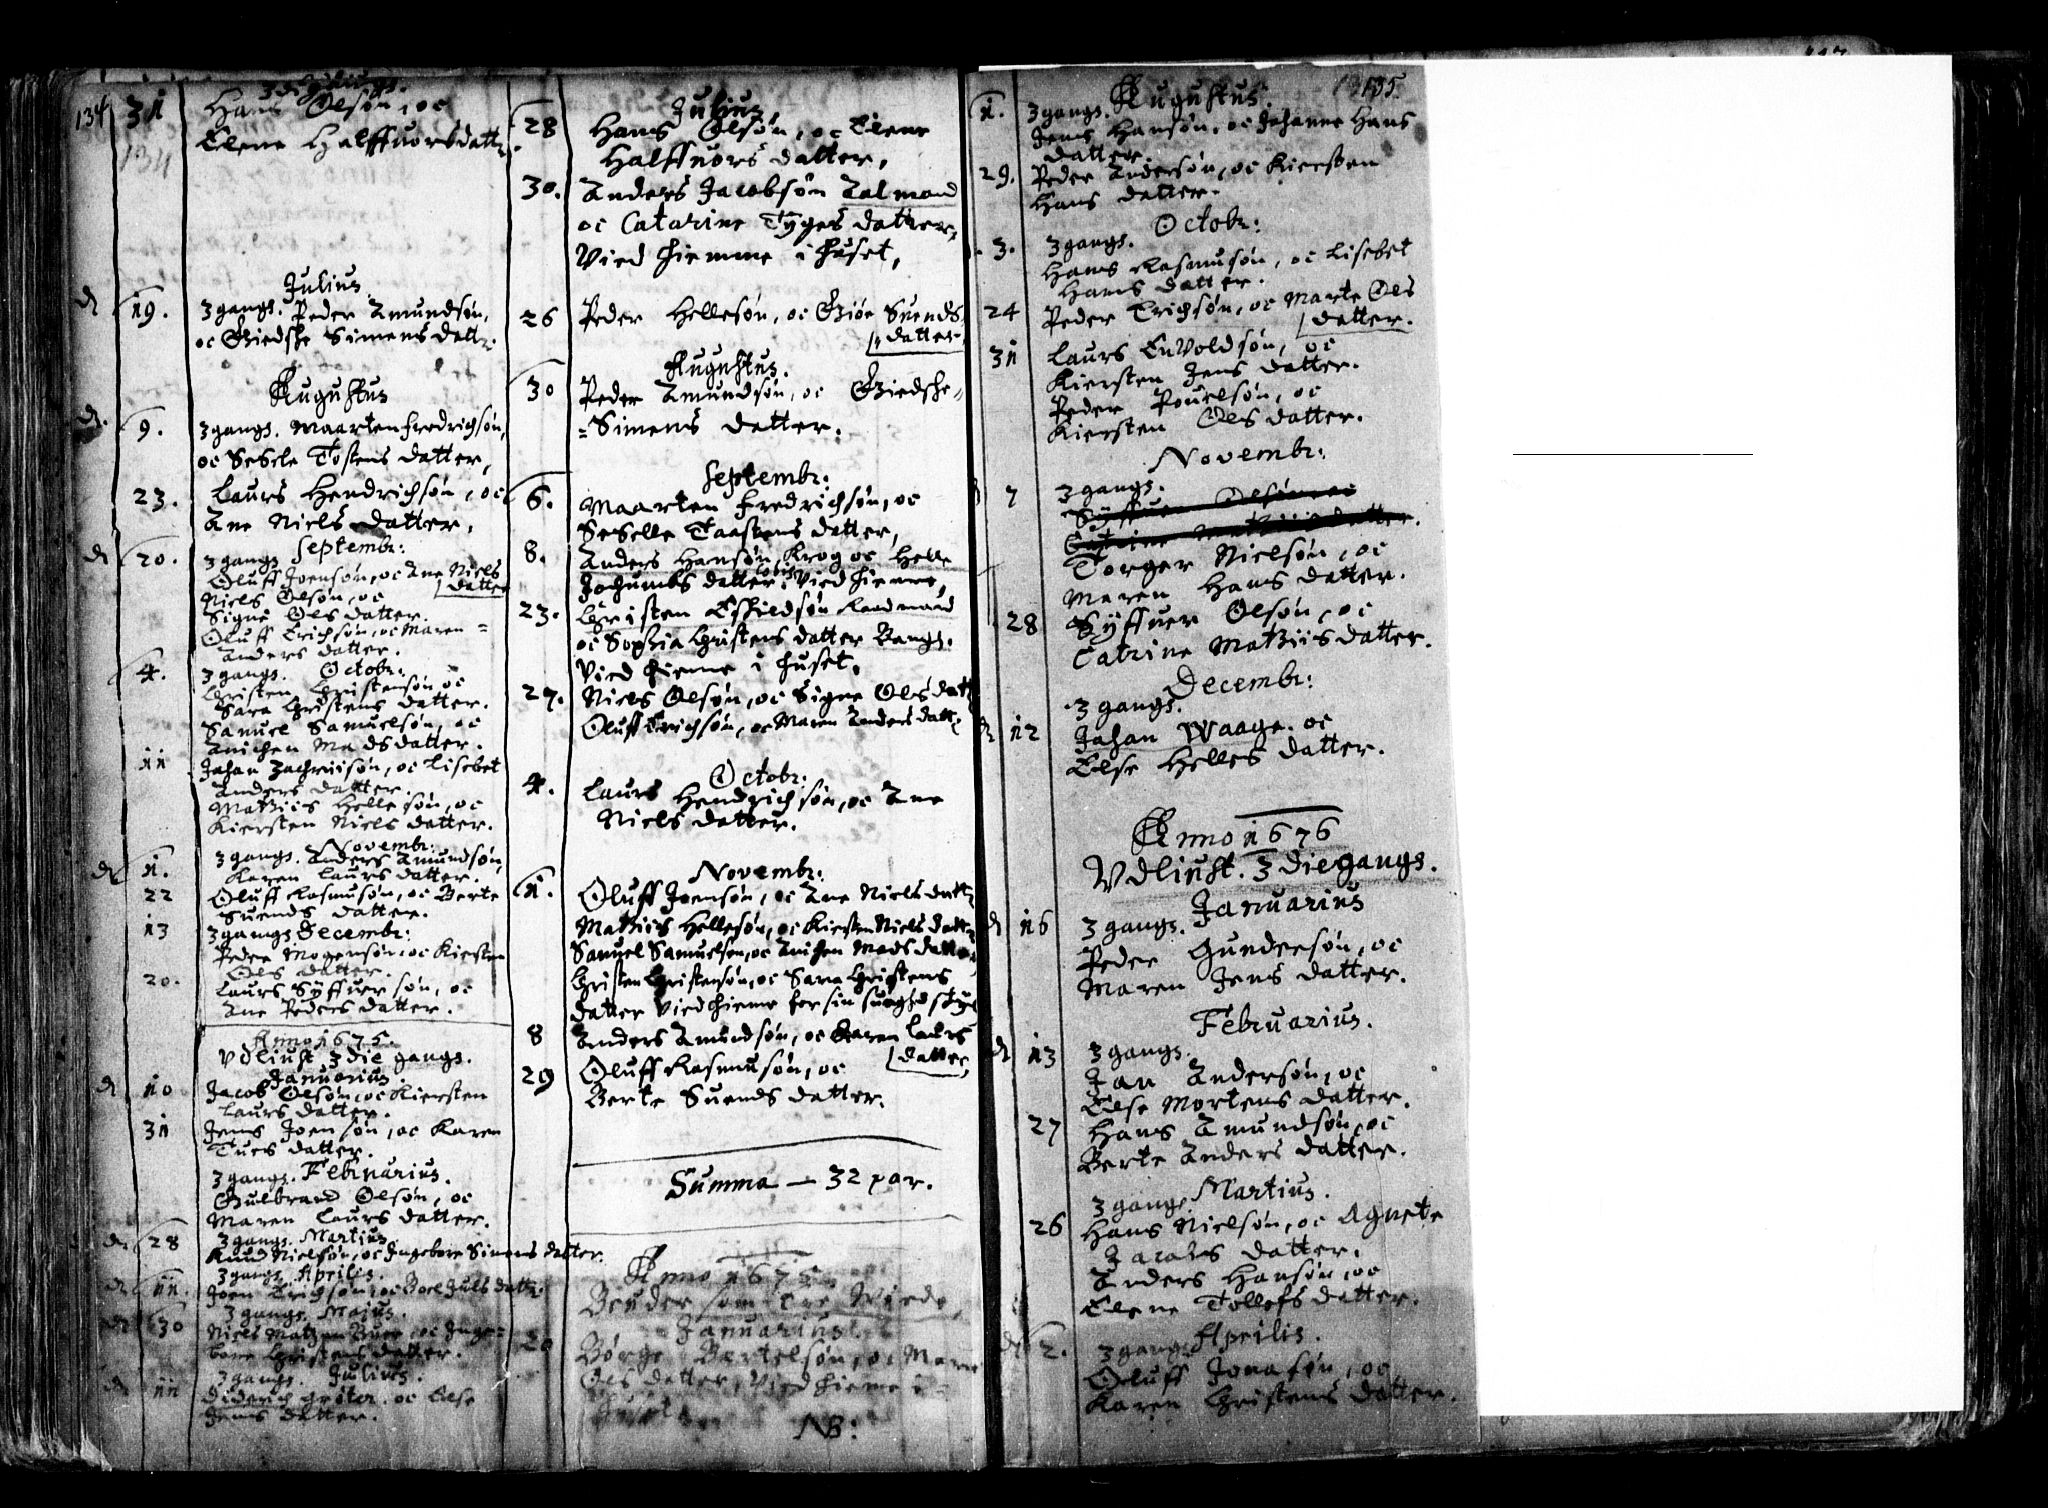 134
134
3 diegangs.
31 Hans Olsøn, oc
Elene Halffuorsdatter.
Julius.
19. 3 gangs. Peder Amundsøn,
oc Giedske Simens datter.
Augustus
9. 3 gangs. Maarten Fredrichsøn,
oc Seselle Tostens datter,
23. Laurs Hendrichsøn, oc
Ane Niels datter,
Septembr:
20. 3 gangs
Oluff Joensøn, oc Ane Niels
datter
Niels Olsøn, oc
Signe Ols datter.
Oluff Erichsøn, oc Maren =
Anders datter.
Octobr:
4. 3 gangs.
Christen Christensøn oc
Sara Christens datter.
Samuel Samuelsøn, oc
Anichen Mads datter.
11 Johan Zachriisøn, oc Lisebet
Anders datter.
Mathiis Hellesøn, oc
Kiersten Niels datter.
Novembr:
1. 3 gangs. Anders Amundsøn,
Karen Laurs datter.
22 Oluff Rasmusøn, oc Berte
Suends datter.
13 3 gangs Decembr:
Peder Mogensøn, oc Kiersten
Ols datter.
20. Laurs Syffuersøn, oc
Ane Peders datter.
Anno 1675.
Vdliust 3 die gangs.
Januarius
10 Jacob Olsøn, oc Kiersten
Laurs datter.
31 Jens Joensøn, oc Karen
Tues datter.
3 gangs. Februarius.
Gulbrand Olsøn, oc
Maren Laurs datter.
3 gangs. Martius.
28 Knud Nielsøn, oc Ingebore Simens datter.
3 gangs Aprilis.
11. Joen Erichsøn, oc Boel Juls datter
3 gangs. Maius.
30 Niels Matzen Buer, oc Inge=
bore Christens datter.
3 gangs. Julius.
11 Diderich Gröter. oc Else
Jens datter.
Julius,
28 Hans Olsøn, oc Elene
Halffuors datter,
30. Anders Jacobsøn Talmand
oc Catarine Tyges datter,
Vied hiemme i huset,
26 Peder Hellesøn, oc Giøe Suends
datter
Augustus.
30 Peder Amundsøn, oc Giedske=
=Simens datter.
Septembr:
6. Maarten Fredrichsøn, oc
Seselle Taastens datter,
8. Anders Hansøn Krog oc Helle
Jochumbs datter, Vied hieme,
23. Christen Eskildsøn Raadmand
oc Sophia Christens datter Bangs.
Vied hieme i huset,
27. Niels Olsøn, oc Signe Ols datt
Oluff Erichsøn, oc Maren Anders datt.
Octobr:
4. Laurs Hendrichsøn, oc Ane
Niels datter.
Novembr:
1. Oluff Joensøn, oc Ane Niels datt
Mathiis Hellesøn, oc Kiersten Niels datt
Samuel Samuelsøn, oc Anichen Mads datter
Christen Christensøn, oc Sara Christens
datter Vied hieme for sin suaghed skyl
8 Anders Amundsøn, oc Karen Laurs
datter,
29 Oluff Rasmusøn, oc
Berte Suends datter.
Summa — 32 par.
Anno 1675
Januarius
20 Børge Bertelsøn, oc Maren
Ols datter, Vied hieme i =
huset.
NB:
135.
Augustus.
1. 3 gangs.
Jens Hansøn, oc Johanne Hans
datter.
29. Peder Andersøn, oc Kiersten
Hans datter.
Octobr:
3. 3 gangs.
Hans Rasmusøn, oc Lisebet
Hans datter.
24 Peder Erichsøn, oc Marte Ols
datter.
31 Laurs Envoldsøn, oc
Kiersten Jens datter.
Peder Pouelsøn, oc
Kiersten Ols datter.
Novembr:
7 3 gangs.
Syffuer Olsøn, oc
Catrine Mathiis datter.
Torger Nielsøn, oc
Maren Hans datter.
28 Syffuer Olsøn, oc
Catrine Mathiis datter.
Decembr:
3 gangs.
12 Johan Waage. oc
Else Helles datter.
Anno 1676
Vdliust. 3 diegangs.
Januarius
16 3 gangs.
Peder Gundersøn, oc
Maren Jens datter.
Februarius.
13 3 gangs.
Jan Andersøn, oc
Else Mortens datter.
27 Hans Amundsøn, oc
Berte Anders datter.
Martius.
3 gangs
26 Hans Nielsøn, oc Agnete
Jacobs datter.
Anders Hansøn, oc
Elene Tollefs datter.
Aprilis.
2. 3 gangs
Oluff Jonasøn, oc
Karen Christens datter.